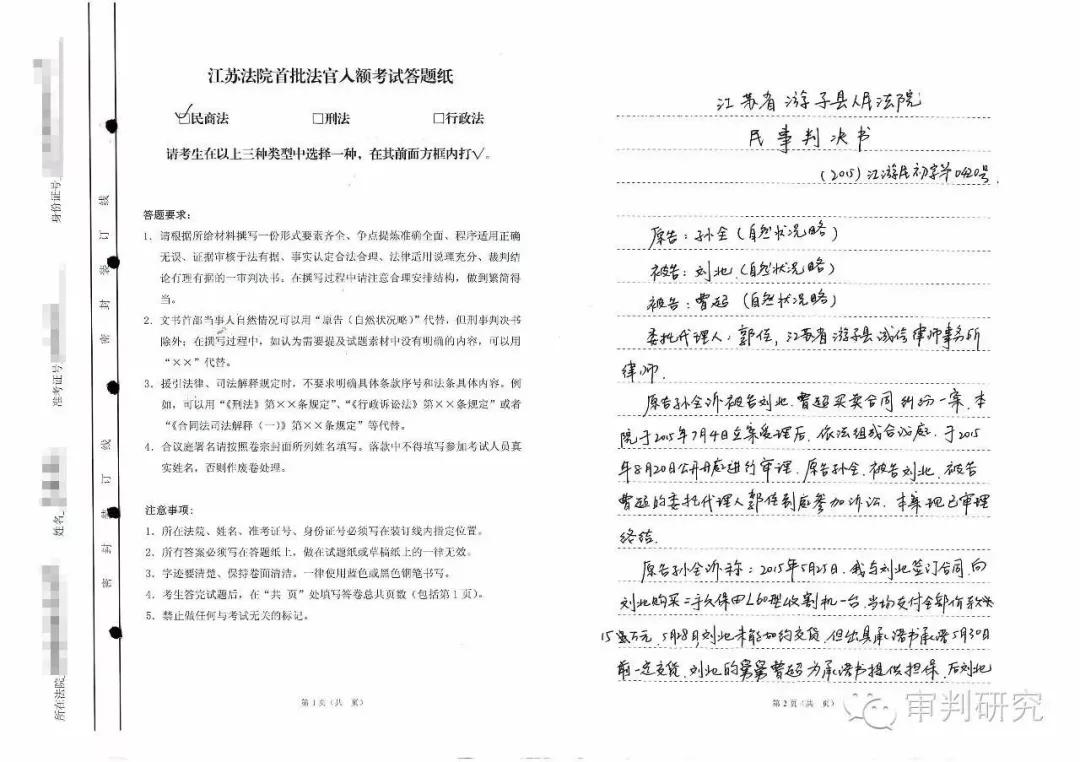 江苏法院首批法官入额考试答题纸
☑民商法 □刑法 □行政法
请考生在以上三种类型中选择一种，在其前面方框内打√。
答题要求：
1、请根据所给材料撰写一份形式要素齐全、争点提炼准确全面、程序适用正确
无误、证据审核于法有据、事实认定合法合理、法律适用说理充分、裁判结
论有理有据的一审判决书。在撰写过程中请注意合理安排结构，做到繁简得
当。
2、文书首部当事人自然情况可以用“原告（自然状况略）”代替，但刑事判决书
除外；在撰写过程中，如认为需要提及试题素材中没有明确的内容，可以用
“××”代替。
3、援引法律、司法解释规定时，不要求明确具体条款序号和法条具体内容。例
如，可以用“《刑法》第××条规定”、“《行政诉讼法》第××条规定”或者
“《合同法司法解释（一）》第××条规定”等代替。
4、合议庭署名请按照卷宗封面所列姓名填写。落款中不得填写参加考试人员真
实姓名，否则作废卷处理。
注意事项：
1、所在法院、姓名、准考证号、身份证号必须写在装订线内指定位置。
2、所有答案必须写在答题纸上，做在试题纸或草稿纸上的一律无效。
3、字迹要清楚、保持卷面清洁。一律使用蓝色或黑色钢笔书写。
4、考生答完试题后，在“共 页”处填写答卷总共页数（包括第1页）。
5、禁止做任何与考试无关的标记。
第1页（共 页）
身份证号
准考证号
姓名
所在法院
密 封 装 订 线
密 封 装 订 线
江苏省游子县人民法院
民事判决书
（2015）江游民初字第0420号
原告：孙全（自然状况略）
被告：刘北（自然状况略）
被告：曹超（自然状况略）
委托代理人：郭信，江苏省游子县诚信律师事务所
律师。
原告孙全诉被告刘北、曹超买卖合同纠纷一案，本
院于2015年7月4日立案受理后，依法组成合议庭，于2015
年8月20日公开开庭进行审理，原告孙全、被告刘北、被告
曹超的委托代理人郭信到庭参加诉讼。本案现已审理
终结。
原告孙全诉称：2015年5月25日，我与刘北签订合同，向
刘北购买二手久保田L60型收割机一台，当场交付全部价款
15万元，5月8日刘北未能如约交货，但出具承诺书承诺5月30日
前一定交货，刘北的舅舅曹超为承诺书提供担保，后刘北
第2页（共 页）
审判研究